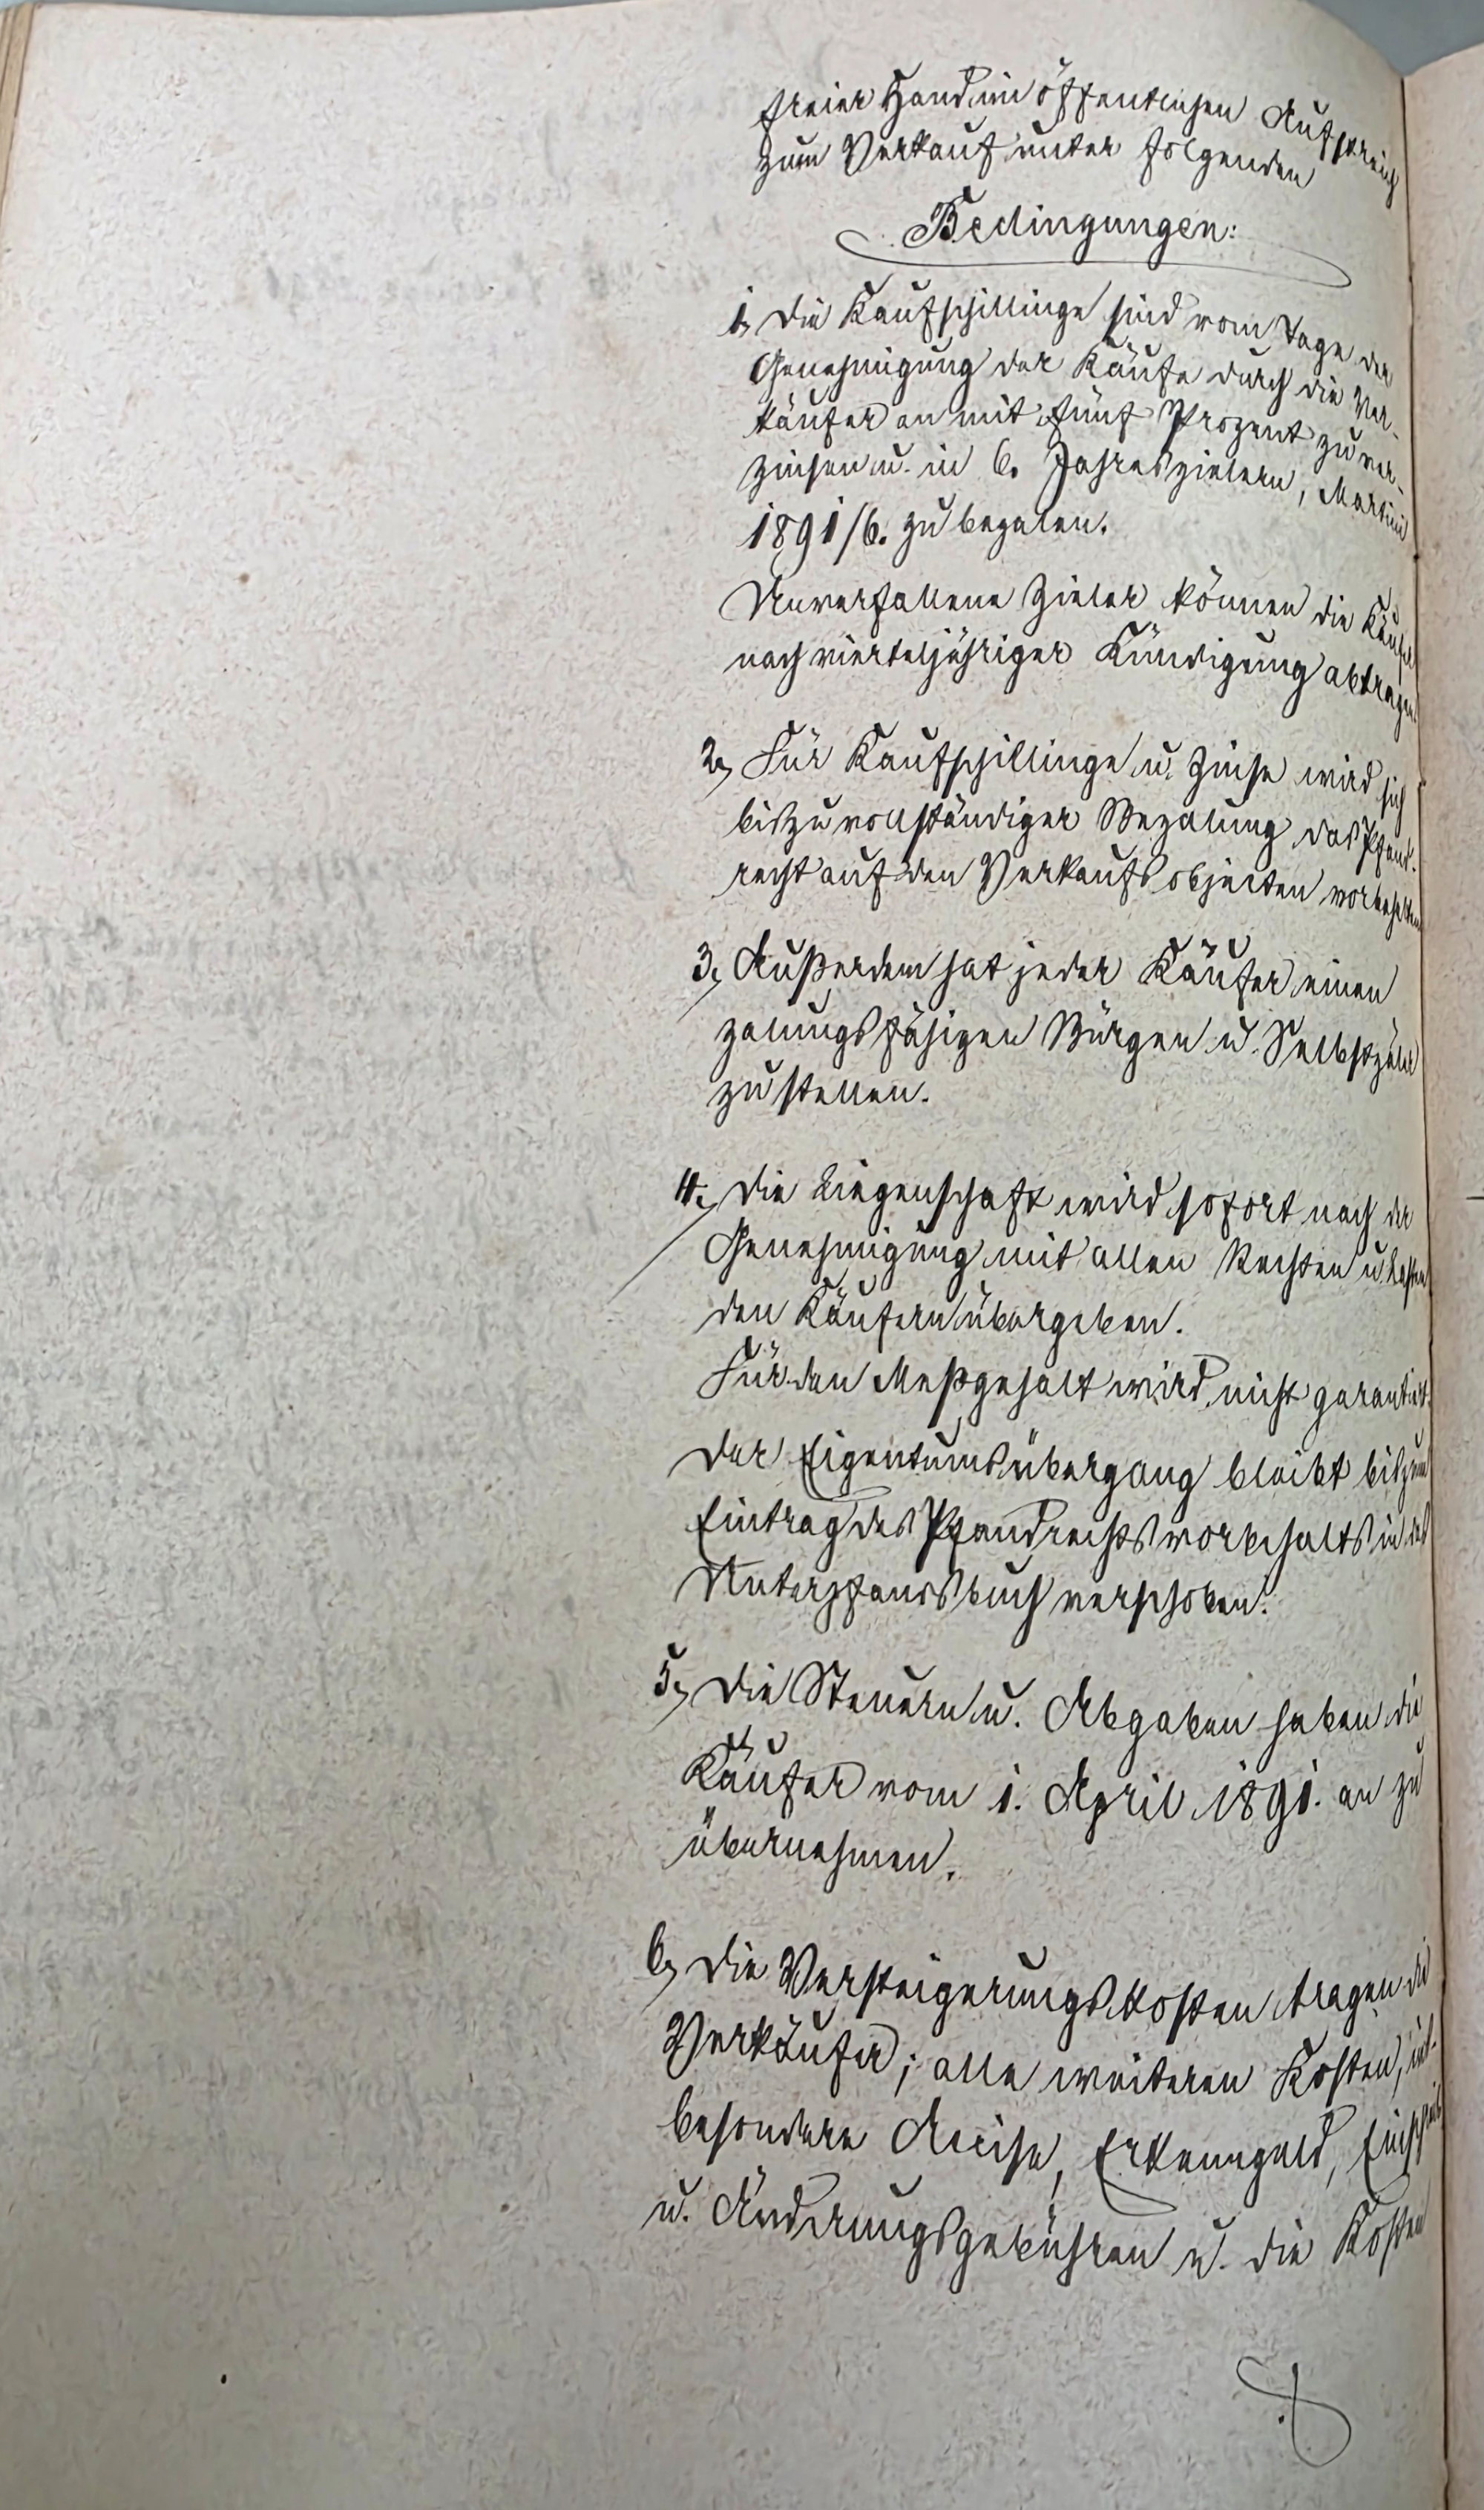 freier Hand im öffentlichen Aufstreich
zum Verkauf unter folgenden
Bedingungen:
1, Die Kaufschillinge sind vom Tage der
Genehmigung der Käufe durch die Ver-
käufer an mit fünf Prozent zu ver-
zinsen u. in 6. Jahreszielern, Martini
1891/6. zu bezalen.
Unverfallene Zieler können die Käufer
nach vierteljähriger Kündigung abtragen.
2, Für Kaufschillinge u. Zinse wird sich
bis zu vollständiger Bezalung das Pfand-
recht auf den Verkaufsobjecten vorbehalten
3, Außerdem hat jeder Käufer einen
zalungsfähigen Bürgen u. Selbstzäler
zu stellen.
4, Die Liegenschaft wird sofort nach der
Genehmigung mit allen Rechten u. Lasten
den Käufern übergeben.
Für den Meßgehalt wird nicht garantirt.
Der Eigentumsübergang bleibt bis zum
Eintrag des Pfandrechtsvorbehalts in das
Unterpfandsbuch verschoben.
5, Die Steuern u. Abgaben haben die
Käufer vom 1. April 1891. an zu
übernehmen.
6, Die Versteigerungskosten tragen die
Verkäufer; alle weiteren Kosten, ins-
besondere Accise, Erkenngeld,
u. Änderungsgebühren u. die Kosten